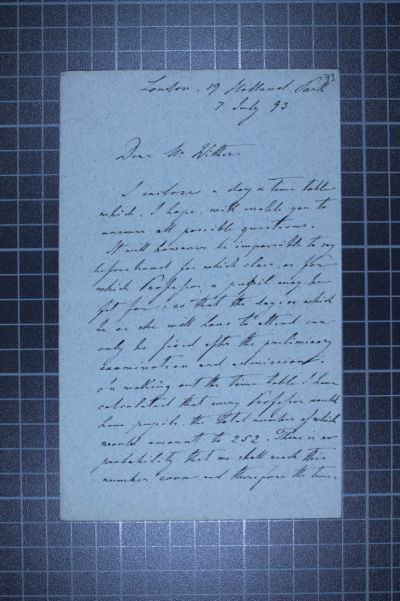 33
London, 19 Holland Park
7 July 93
Dear Mr. Withers
I enclose a day & time table
which, I hope, will enable you to
answer all possible questions.
It will however be impossible to say
beforehand for which class, or for
which Professor, a pupil may be
fit for; so that the days on which
he or she will have to attend can
only be fixed after the preliminary
examination and admission.
In making out the time table I have
calculated that every Professor would
have pupils, the total number of which
would amount to 252. There is no
probability that we shall reach this
number soon and therefore the time